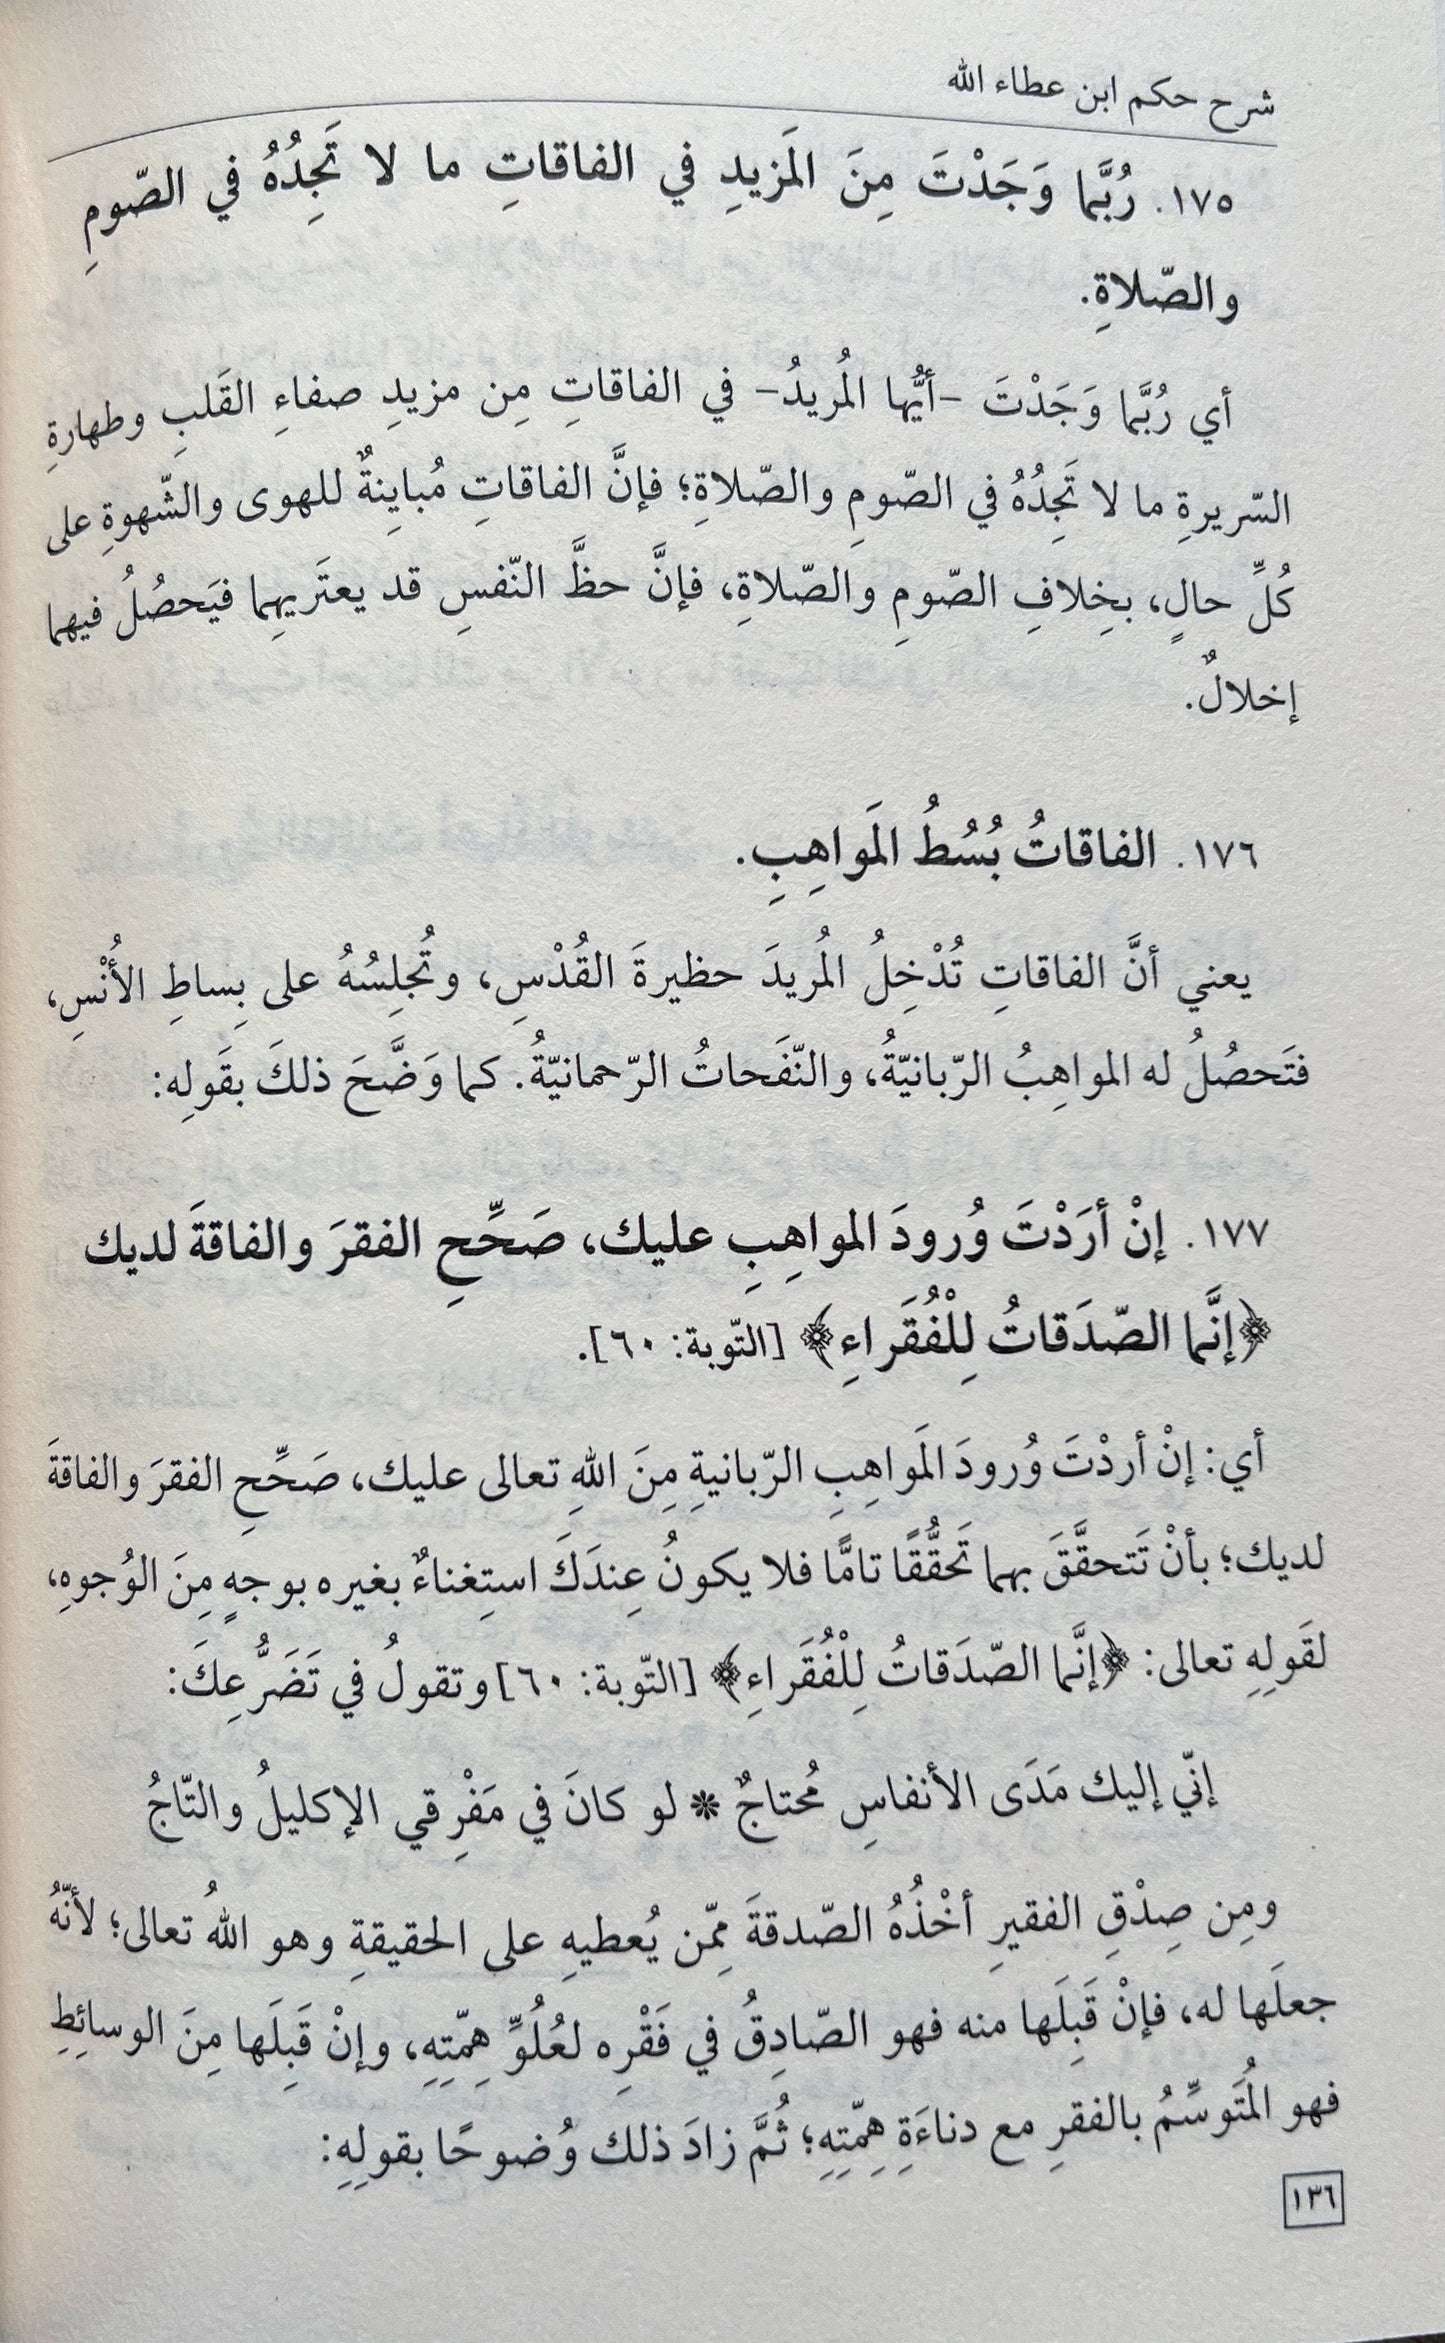 شرح حكم ابن عطاء الله
١٧٥. رُبَّما وَجَدْتَ مِنَ المَزيدِ في الفاقاتِ ما لا تَجِدُهُ في الصّومِ
والصّلاةِ.
أي رُبَّما وَجَدْتَ -أيُّها المُريدُ- في الفاقاتِ مِن مزيدِ صفاءِ القَلبِ وطهارةِ
السّريرةِ ما لا تَجِدُهُ في الصّومِ والصّلاةِ؛ فإنَّ الفاقاتِ مُبايِنةٌ للهوى والشّهوةِ على
كُلِّ حالٍ، بخِلافِ الصّومِ والصّلاةِ، فإنَّ حظَّ النّفسِ قد يعتَريهِما فيَحصُلُ فيهما
إخلالٌ.
١٧٦. الفاقاتُ بُسُطُ المَواهِبِ.
يعني أنَّ الفاقاتِ تُدْخِلُ المُريدَ حظيرةَ القُدْسِ، وتُجلِسُهُ على بِساطِ الأُنْسِ،
فتَحصُلُ له المواهِبُ الرّبانيّةُ، والنّفَحاتُ الرّحمانيّةُ. كما وَضَّحَ ذلكَ بقَولِه:
١٧٧. إنْ أرَدْتَ وُرودَ المواهِبِ عليك، صَحِّحِ الفقرَ والفاقةَ لديك
﴿إنَّما الصّدَقاتُ لِلْفُقَراءِ﴾ [التّوبة: ٦٠].
أي: إنْ أردْتَ وُرودَ المَواهِبِ الرّبانيةِ مِنَ اللهِ تعالى عليك، صَحِّحِ الفقرَ والفاقةَ
لديك؛ بأنْ تَتحقَّقَ بهما تَحقُّقًا تامًّا فلا يكونُ عِندَكَ استِغناءٌ بغيره بوجهٍ مِنَ الوُجوهِ،
لقَولِهِ تعالى: ﴿إنَّما الصّدَقاتُ لِلْفُقَراءِ﴾ [التّوبة: ٦٠] وتقولُ في تَضَرُّعِكَ:
إنّي إليك مَدَى الأنفاسِ مُحتاجٌ * لو كانَ في مَفْرِقي الإكليلُ والتّاجُ
ومِن صِدْقِ الفقيرِ أخْذُهُ الصّدقةَ مِمّن يُعطيهِ على الحقيقةِ وهو اللهُ تعالى؛ لأنّهُ
جعلَها له، فإنْ قَبِلَها منه فهو الصّادِقُ في فَقْرِه لعُلُوِّ هِمّتِهِ، وإنْ قَبِلَها مِنَ الوسائِطِ
فهو المُتَوسِّمُ بالفقرِ مع دناءَةِ هِمّتِهِ؛ ثُمَّ زادَ ذلك وُضوحًا بقولِهِ:
١٣٦